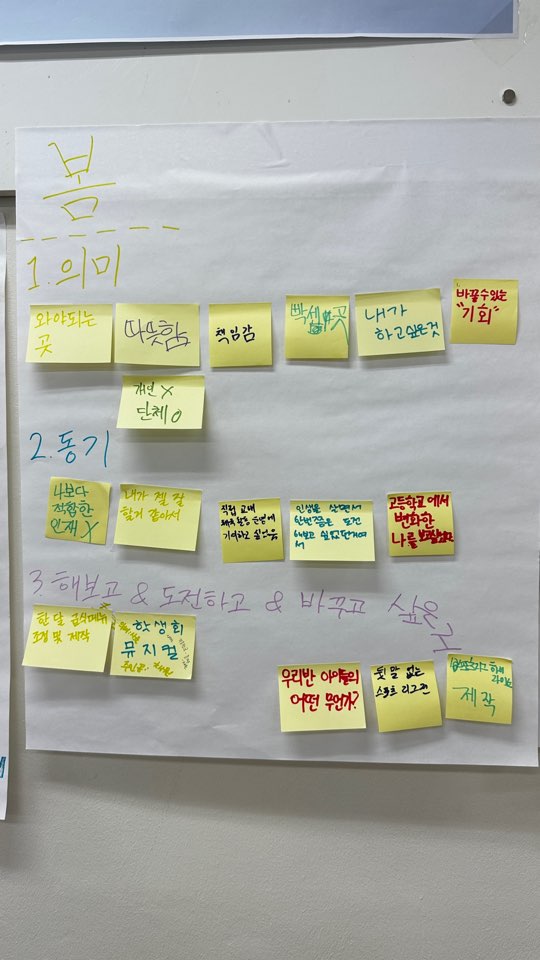 봄
1. 의미
와야되는
곳
따뜻함
책임감
빡센 곳
내가
하고싶은것
바꿀수있는
"기회"
개인 X
단체 O
2. 동기
나보다
적합한
인재 X
내가 젤 잘
할거 같아서
직접
기여하고 싶었음
인생을 살면서
한번쯤은 도전
해보고 싶었던거여
서
고등학교에서
변화한
나를
3. 해보고 & 도전하고 & 바꾸고 싶은
한 달 급식메뉴
조정 및 제작
학생회
뮤지컬
우리반 아이들의
어떤 무언가?
뒷 말 없는
스포츠 리그전
제작